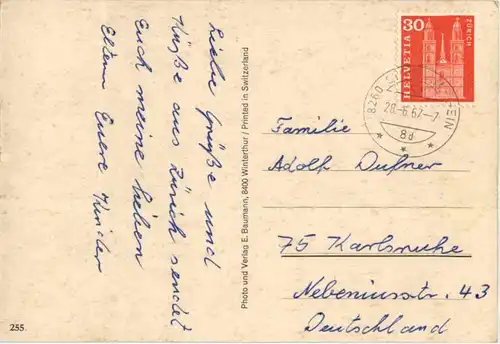 Liebe Grüße und
Küße aus Zürich sendet
Euch meine lieben
Eltern Euere Kinder
255
Photo und Verlag E. Baumann, 8400 Winterthur / Printed in Switzerland
30
HELVETIA
ZÜRICH
8260
EIN
28.-6.67.-7
8d
Familie
Adolf Dufner
75 Karlsruhe
Nebeniusstr. 43
Deutschland